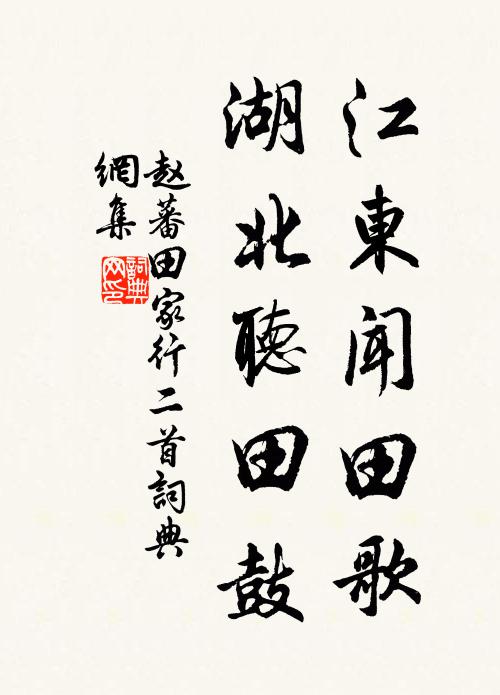 江東聞田歌
湖北聽田鼓
赵蕃田家行二首詞典
網集
詞典
网印